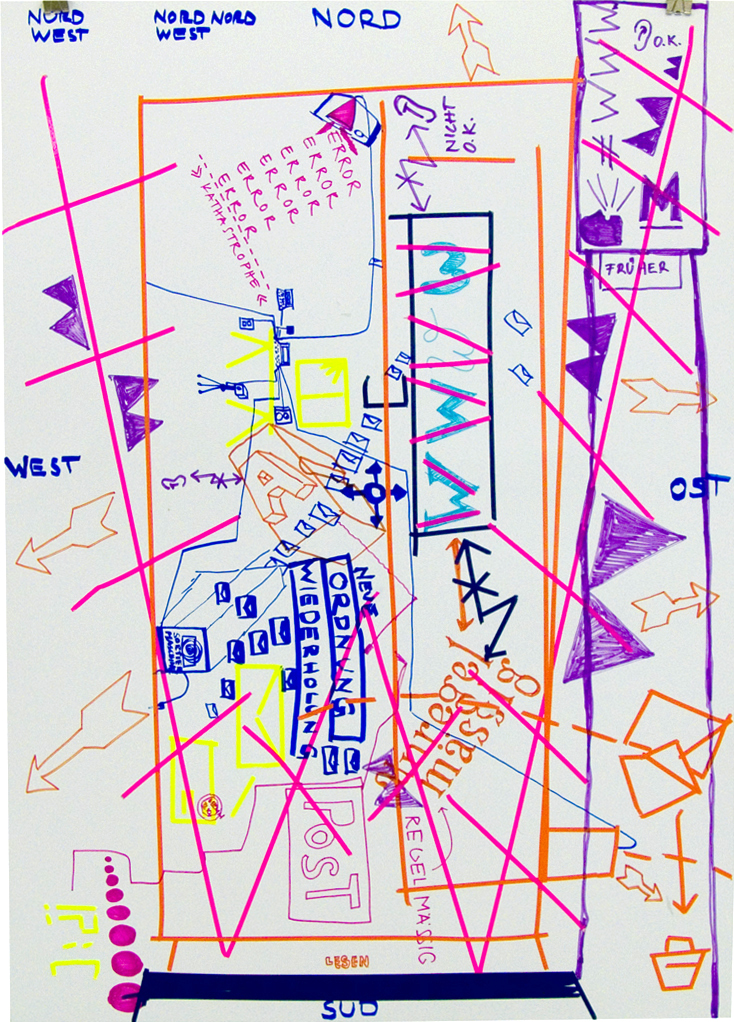 NORD
WEST
NORD NORD
WEST
NORD
O.K.
NICHT
O.K.
ERROR
ERROR
ERROR
ERROR
ERROR
ERROR
KATHASTROPHE
M
FRÜHER
WEST
OST
NEUE
ORDNUNG
WIEDERHOLUNG
REGELMÄSSIG
POST
LESEN
SÜD